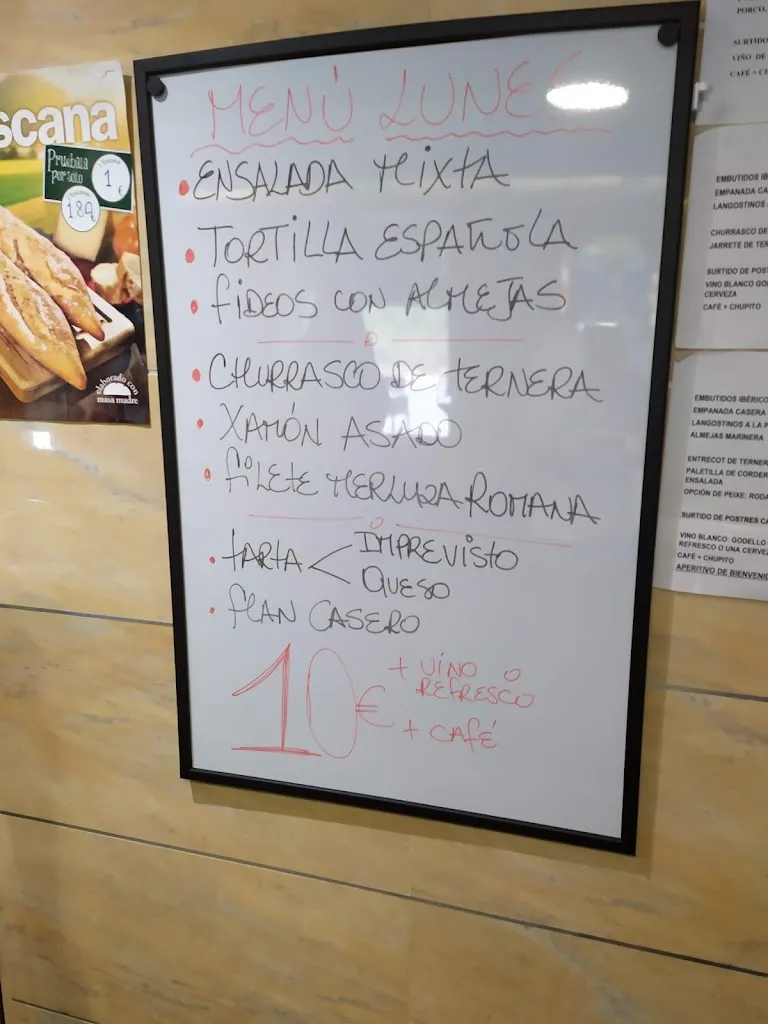 MENÚ LUNES
• ENSALADA MIXTA
• TORTILLA ESPAÑOLA
• FIDEOS CON ALMEJAS
• CHURRASCO DE TERNERA
• XAMÓN ASADO
• FILETE MERLUZA ROMANA
• TARTA < IMPREVISTO
QUESO
• FLAN CASERO
10€ + VINO O
REFRESCO
+ CAFÉ
scana
Pruébala
por sólo
1
€
189
elaborado con
masa madre
PORCO,
SURTIDO
VIÑO DE
EMBUTIDOS
EMPANADA
LANGOSTINOS
CHURRASCO DE
JARRETE DE
SURTIDO DE
VINO BLANCO
CERVEZA
CAFÉ + CHUPITO
EMBUTIDOS IBÉRICO
EMPANADA CASERA
LANGOSTINOS A LA
ALMEJAS MARINERA
ENTRECOT DE
PALETILLA DE
ENSALADA
OPCIÓN DE PEIXE:
SURTIDO DE POSTRES
VINO BLANCO: GODELLO
REFRESCO O UNA
CAFÉ + CHUPITO
APERITIVO DE